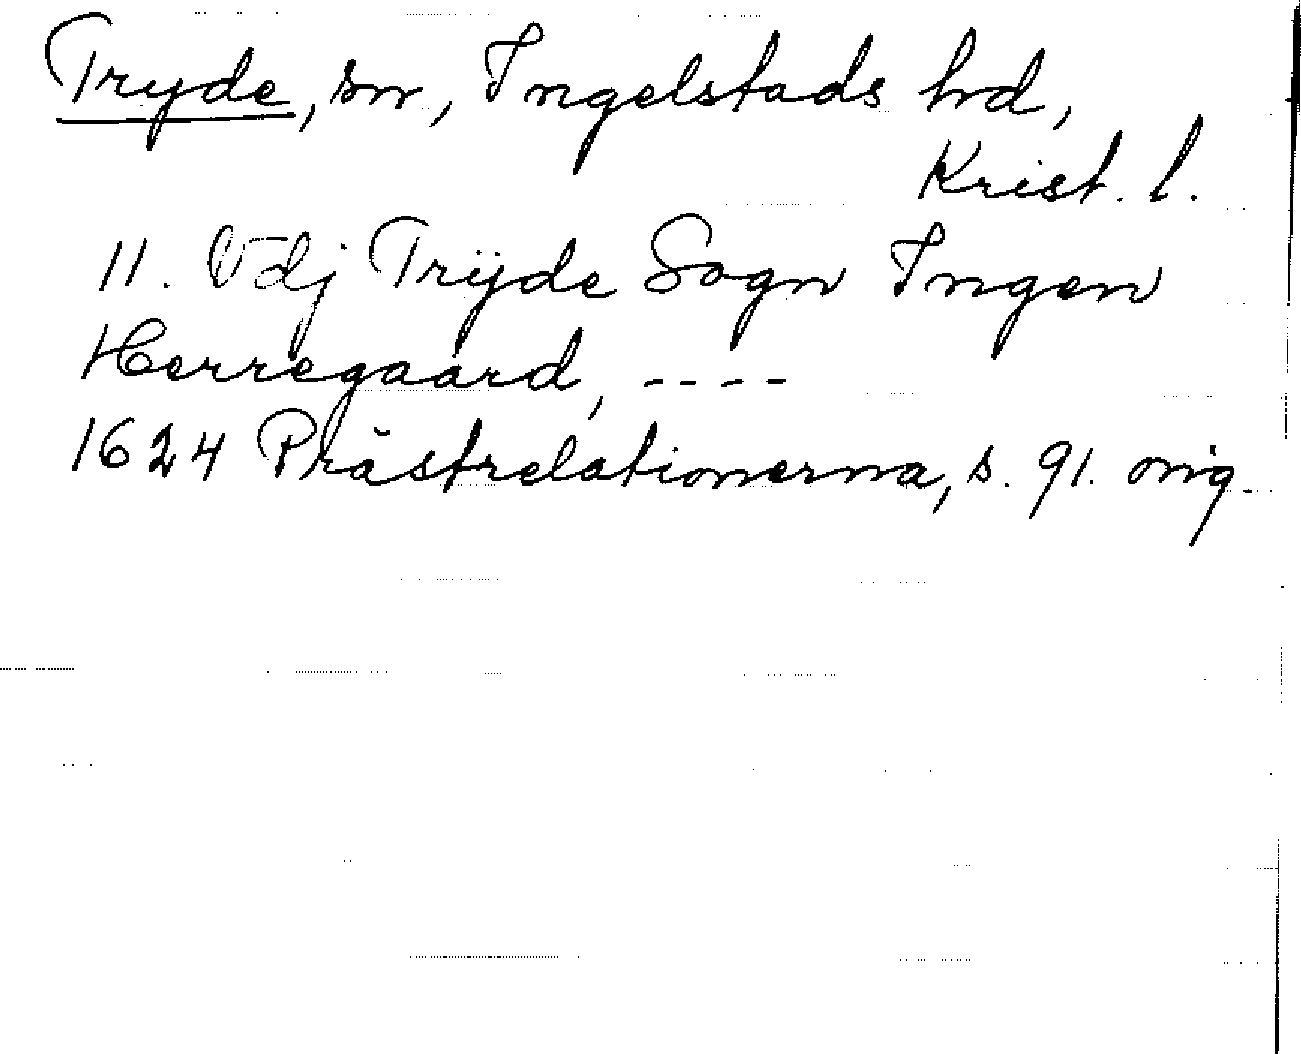 Tryde, sn, Ingelstads hrd,
Krist. l.
11. Vdj Trÿde Sogn Ingen
Herregaard, ----
1624 Prästrelationerna, s. 91. orig.